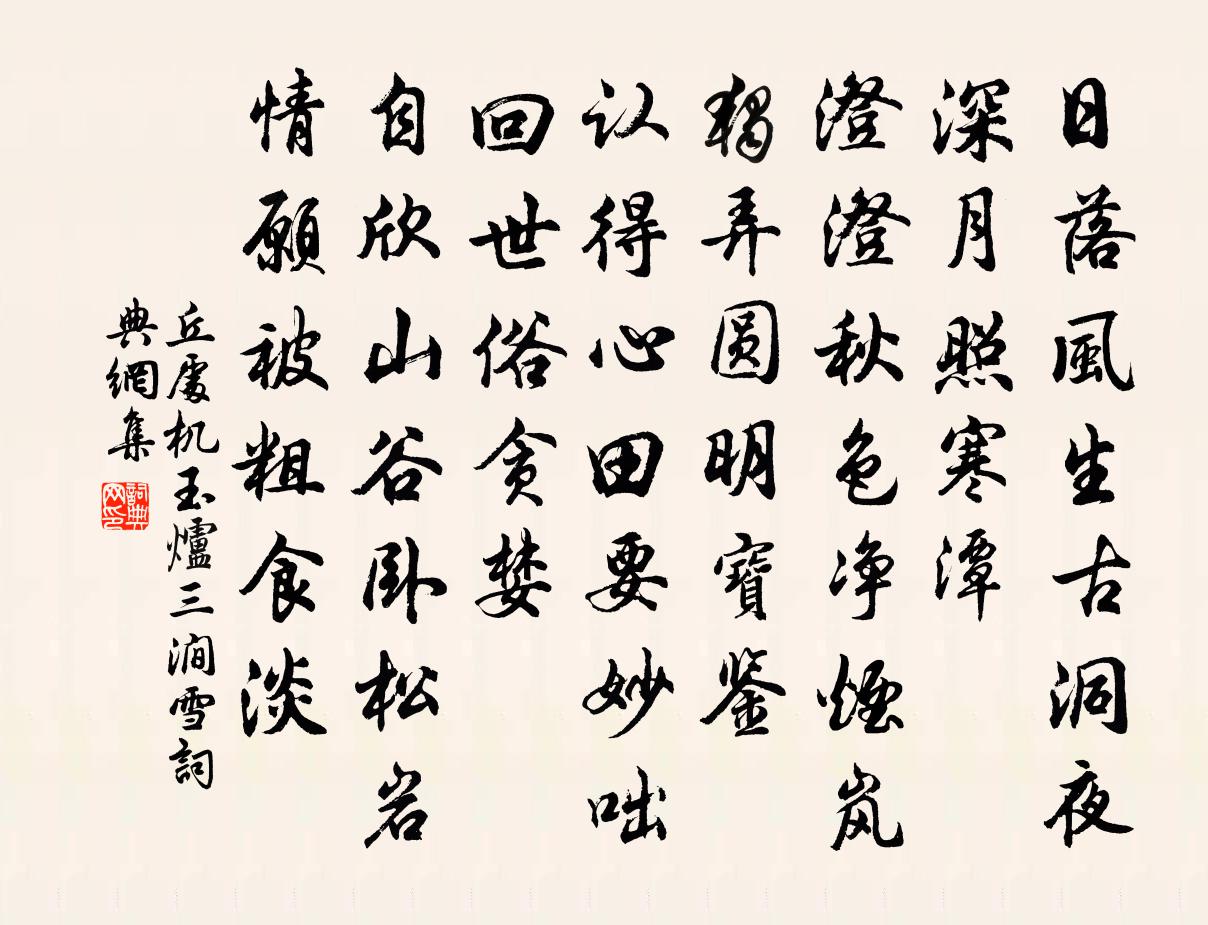 日落風生古洞夜
深月照寒潭
澄澄秋色净煙岚
獨弄圆明寶鉴
认得心田要妙咄
回世俗贪婪
自欣山谷卧松岩
情願被粗食淡
丘處机玉爐三澗雪詞
典網集
詞典
网印